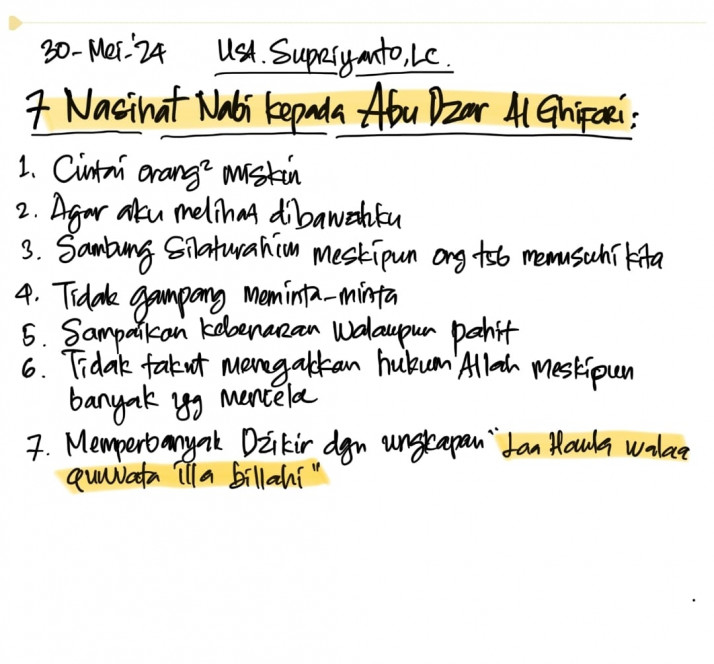 30-Mei-'24 Ust. Supriyanto, Lc.
7 Nasihat Nabi kepada Abu Dzar Al Ghifari:
1. Cintai orang² miskin
2. Agar aku melihat dibawahku
3. Sambung Silaturahim meskipun org tsb memusuhi kita
4. Tidak gampang meminta-minta
5. Sampaikan kebenaran walaupun pahit
6. Tidak takut menegakkan hukum Allah meskipun
banyak yg mencela
7. Memperbanyak Dzikir dgn ungkapan "Laa Haula walaa
quwwata illa billahi"